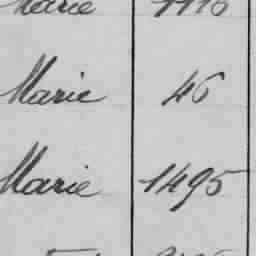 Marie
Marie 46
Marie 1495